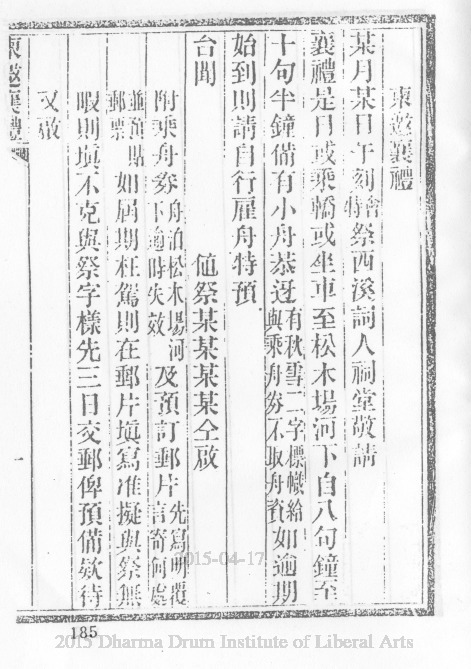 柬邀襄禮
某月某日午刻會特祭西溪詞人祠堂敬請
襄禮是日或乘轎或坐車至松木場河下自八句鐘至
十句半鐘備有小舟恭迓有秋雪二字標幟給與乘舟券不取舟資如逾期
始到則請自行雇舟特預
台聞 値祭某某某某仝啟
附乘舟券舟泊松木場河下逾時失效及預訂郵片先寫明覆言寄何處
並預點郵票如屆期枉駕則在郵片塡寫准擬與祭無
暇則塡不克與祭字樣先三日交郵俾預備欵待
又啟
柬邀襄禮
一
2015-04-17
185
2015 Dharma Drum Institute of Liberal Arts